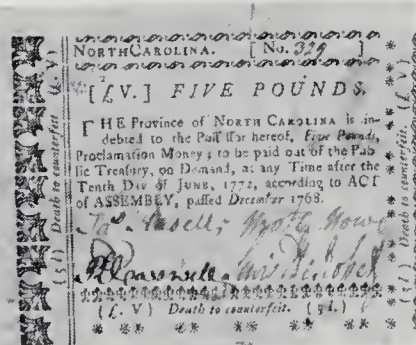 NORTH CAROLINA. [ No. 329 ]
[£V.] FIVE POUNDS.
THE Province of NORTH CAROLINA is in-
debted to the Possessor hereof, Five Pounds,
Proclamation Money; to be paid out of the Pub
lic Treasury, on Demand, at any Time after the
Tenth Day of JUNE, 1772, according to ACT
of ASSEMBLY, passed December 1768.
(£. V) Death to counterfeit. (5l.)
(5l.) Death to counterfeit (£. V)
(5l.) Death to counterfeit (£. V)